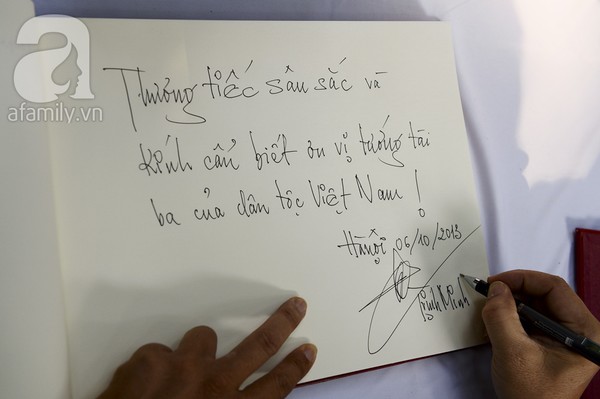 afamily.vn
Thương tiếc sâu sắc và
kính cẩn biết ơn vị tướng tài
ba của dân tộc Việt Nam!
Hà Nội 06/10/2013
Minh